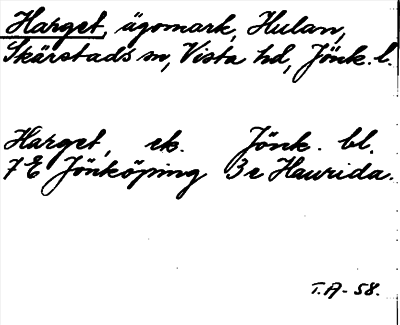 Harget, ägomark, Hulan,
Skärstads sn, Vista hd, Jönk. l.
Harget, ek. Jönk. bl.
7E Jönköping 3e Haurida.
T.A-58.